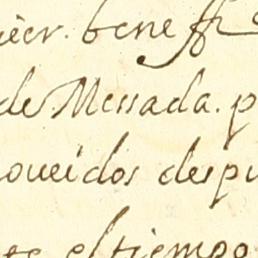 uier. beneffo
de Messada. p
oueidos despu
te el tiempo